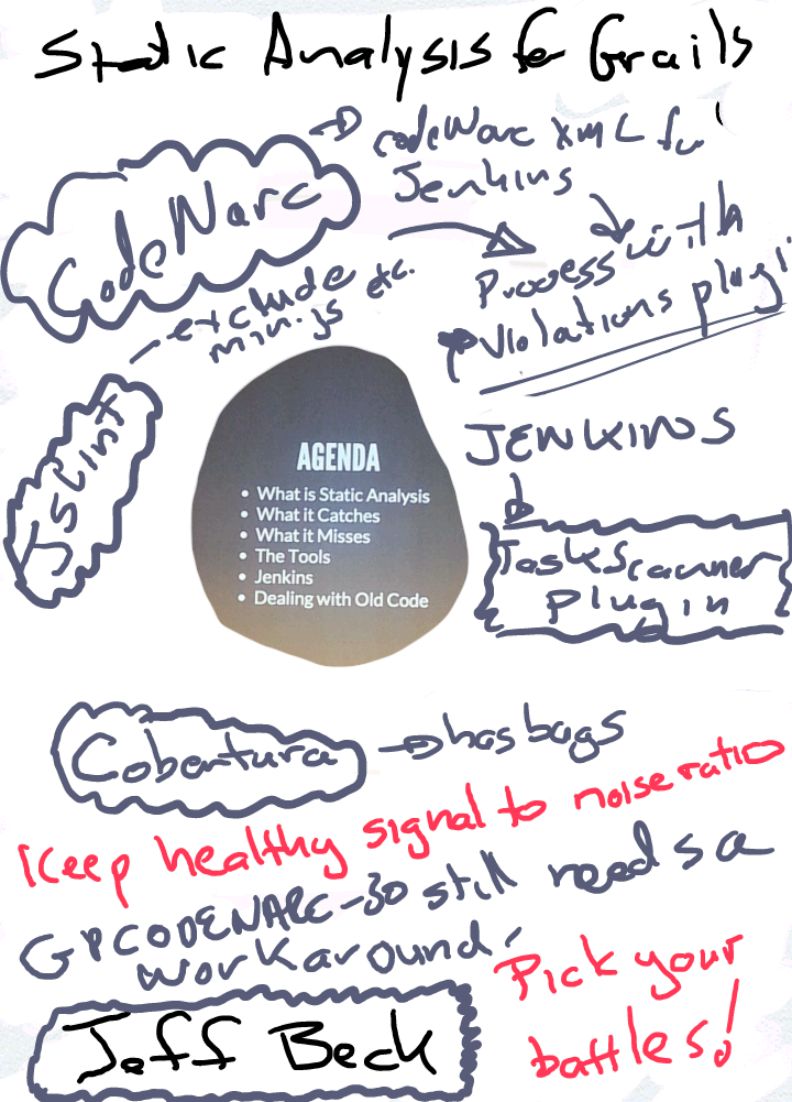 Static Analysis for Grails
CodeNarc
codeNarc XML for
Jenkins
Process with
Violations plugi
exclude
min.js etc.
JSLint
AGENDA
• What is Static Analysis
• What it Catches
• What it Misses
• The Tools
• Jenkins
• Dealing with Old Code
JENKINS
TaskScanner
Plugin
Cobertura
has bugs
Keep healthy signal to noise ratio
GPCODENARC-30 still needs a
workaround!
Pick your
battles!
Jeff Beck